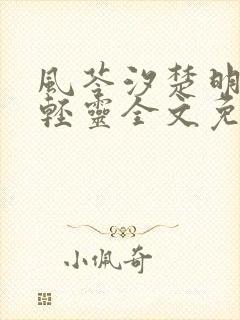 風苓汐楚明
輕靈全文免
小佩奇